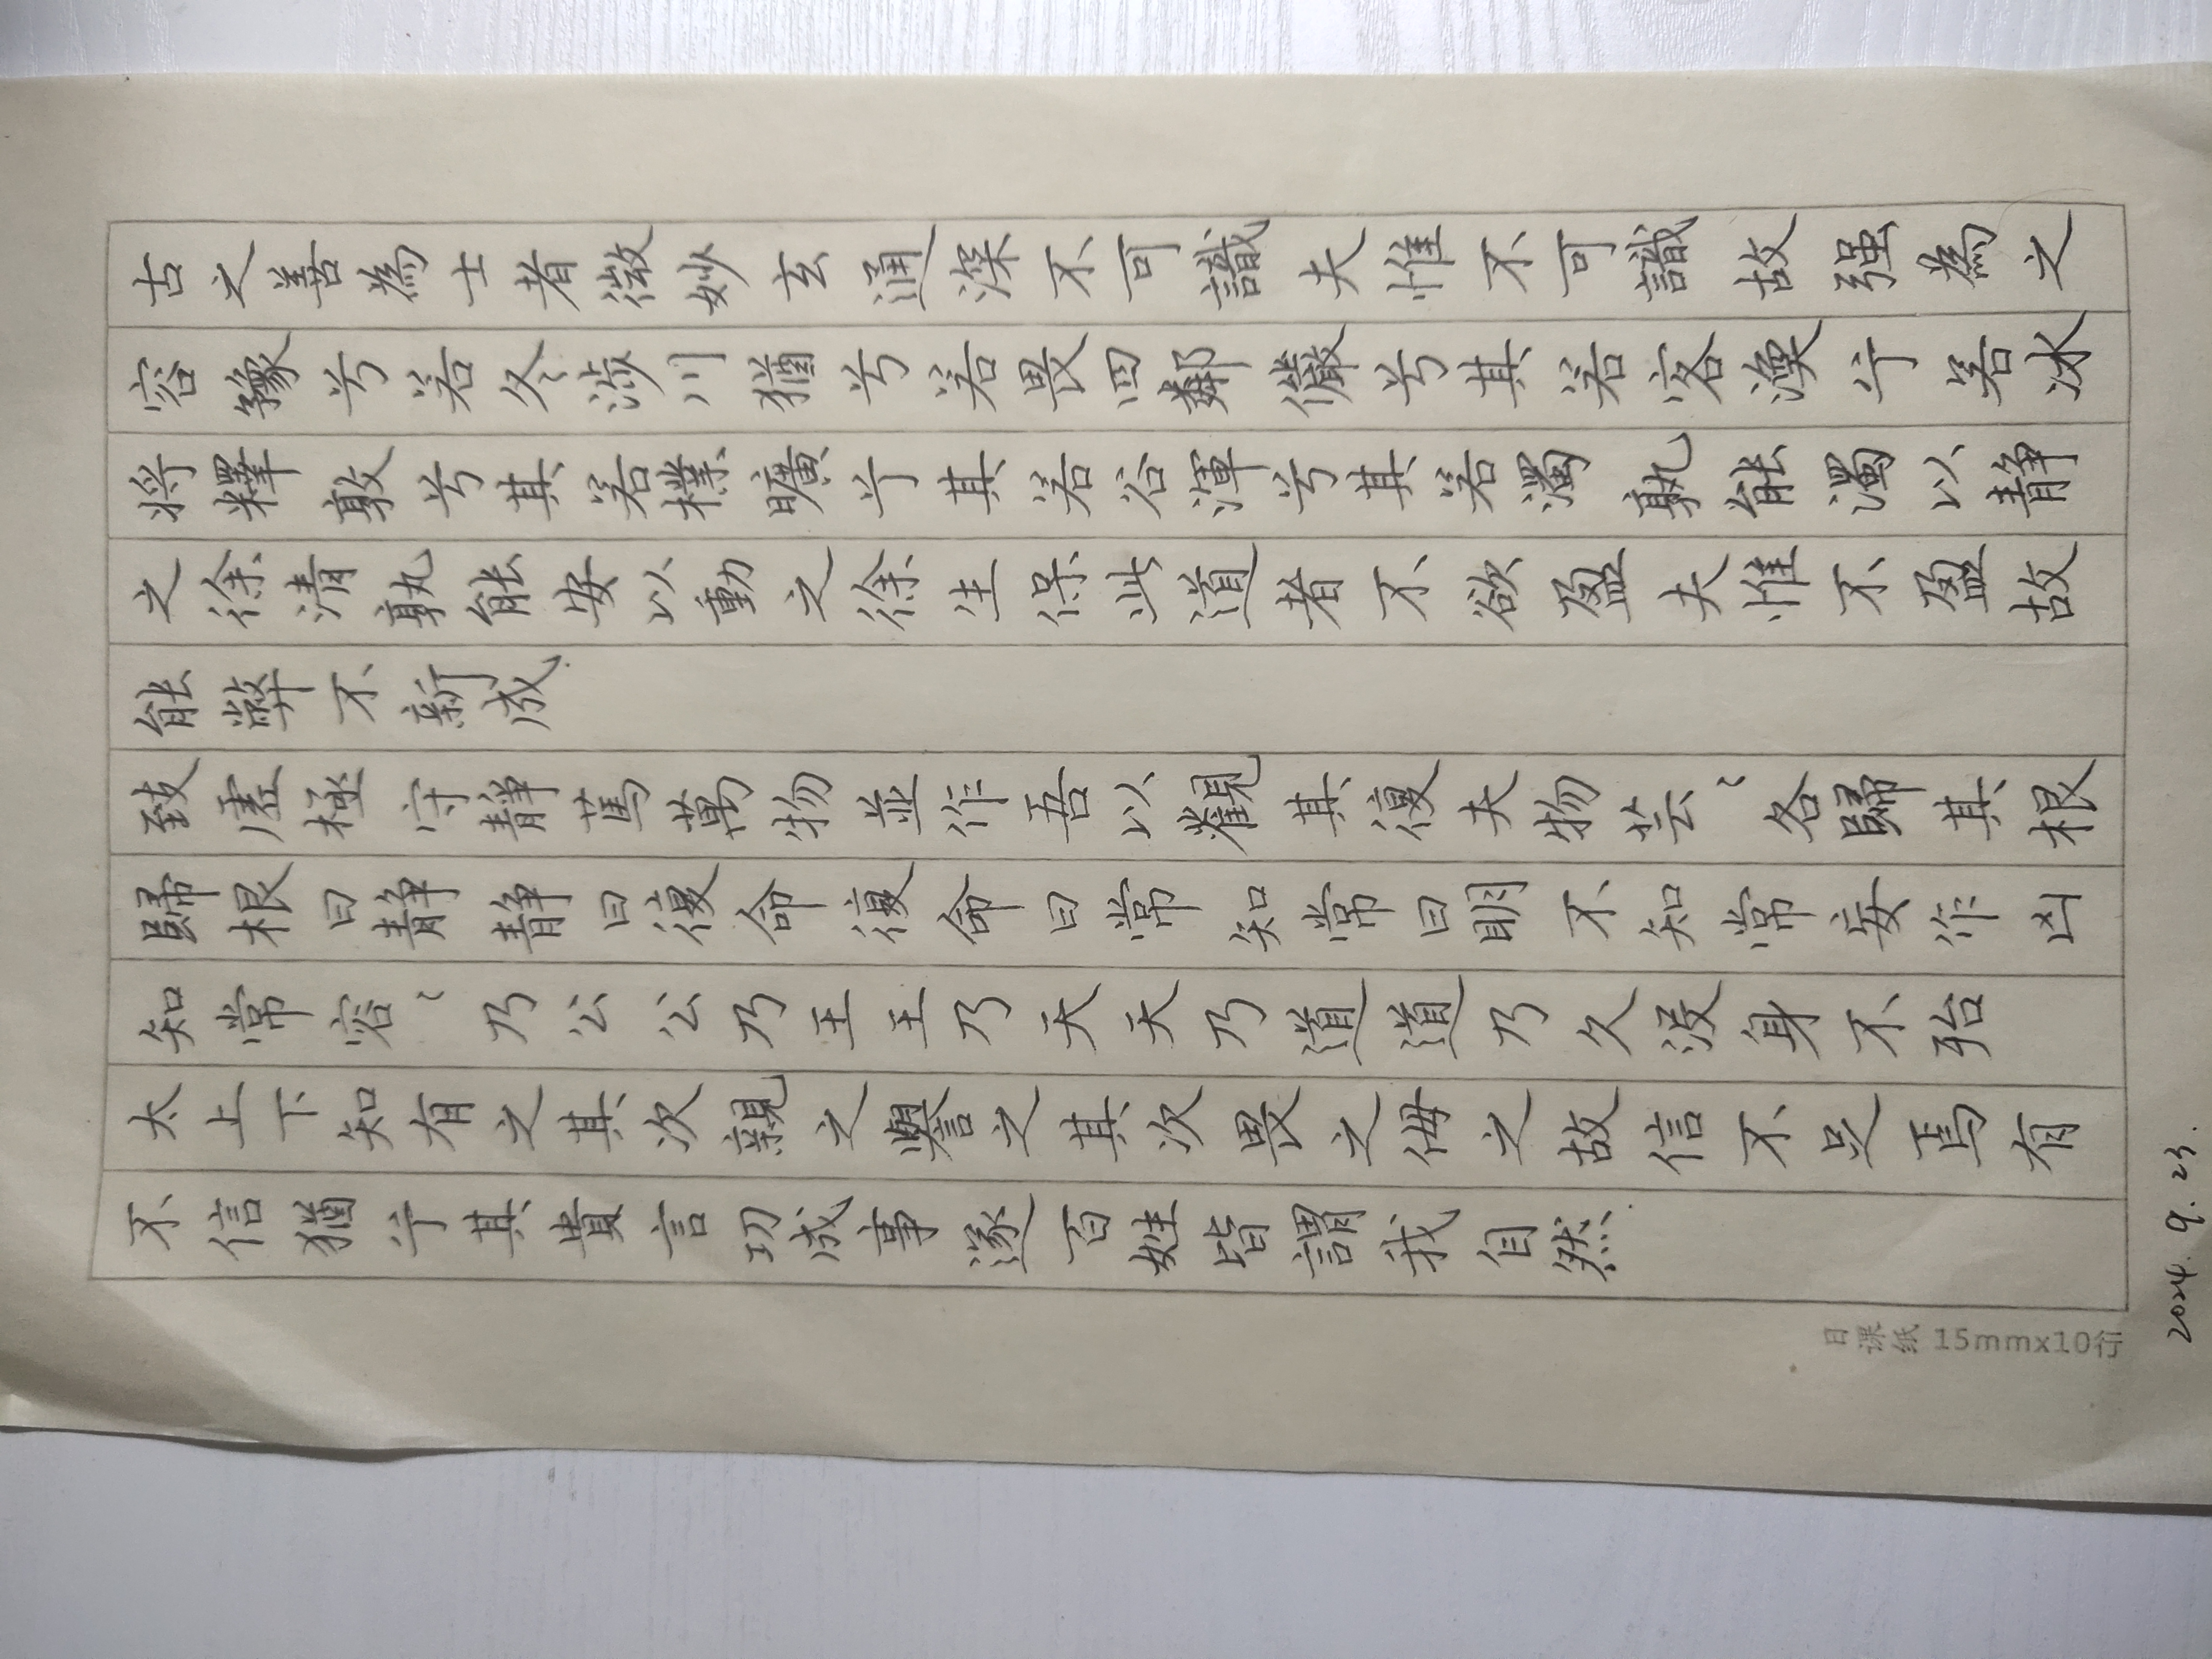 古之善為士者微妙玄通深不可識夫惟不可識故强為之
容豫兮若冬涉川猶兮若畏四鄰儼兮其若客渙兮若冰
將釋敦兮其若樸曠兮其若谷渾兮其若濁孰能濁以静
之徐清孰能安以動之徐生保此道者不欲盈夫惟不盈故
能弊不新成
致虛極守靜篤萬物並作吾以觀其復夫物芸〻各歸其根
歸根曰静静曰復命復命曰常知常曰明不知常妄作凶
知常容〻乃公公乃王王乃天天乃道道乃久没身不殆
太上下知有之其次親之譽之其次畏之侮之故信不足焉有
不信猶兮其貴言功成事遂百姓皆謂我自然
日课纸 15mmx10行
2024.9.23.